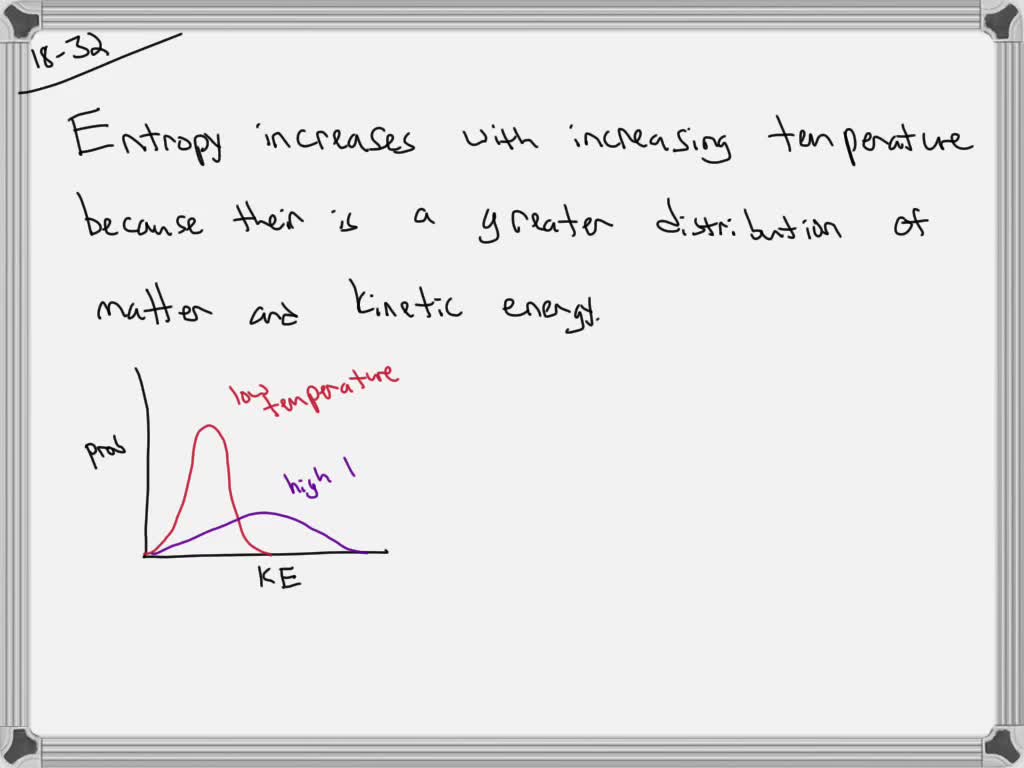 18-32
Entropy increases with increasing temperature
because their is a greater distribution of
matter and kinetic energy.
low temperature
prob
high
KE